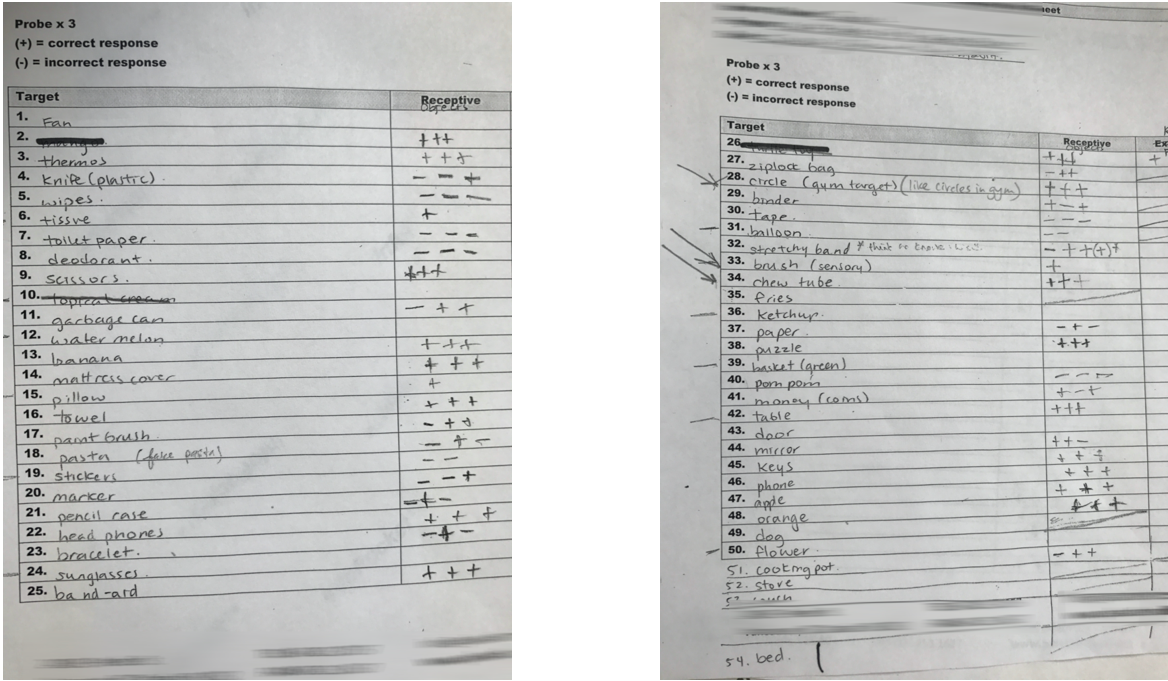 Probe x 3
(+) = correct response
(-) = incorrect response
Target Receptive
Objects
1. Fan
2. +++
3. thermos +++
4. Knife (plastic). - - +
5. wipes. - - -
6. tissue +
7. toilet paper. - - -
8. deodorant. - - -
9. scissors. +++
10. topical cream
11. garbage can - + +
12. water melon
13. banana +++
14. mattress cover + + +
15. pillow +
16. towel + + +
17. paint brush - + +
18. pasta (fake pasta) - + -
19. stickers - -
20. marker - - +
21. pencil case - + -
22. head phones + + +
23. bracelet. - + -
24. sunglasses.
25. band-aid + + +
eet
Probe x 3
(+) = correct response
(-) = incorrect response
Target Receptive Ex
Objects
26. +++ +
27. ziplock bag - ++
28. circle (gym target) (like circles in gym) + + +
29. binder + - +
30. tape. - - -
31. balloon - -
32. stretchy band - + +(+)+
33. brush (sensory) +
34. chew tube +++
35. fries
36. ketchup.
37. paper - + -
38. puzzle +++
39. basket (green)
40. pom pom - - -
41. money (coins) + - +
42. table +++
43. door
44. mirror ++ -
45. keys + + +
46. phone + + +
47. apple + + +
48. orange + + +
49. dog
50. flower - + +
51. cooking pot.
52. stove
53. couch
54. bed.